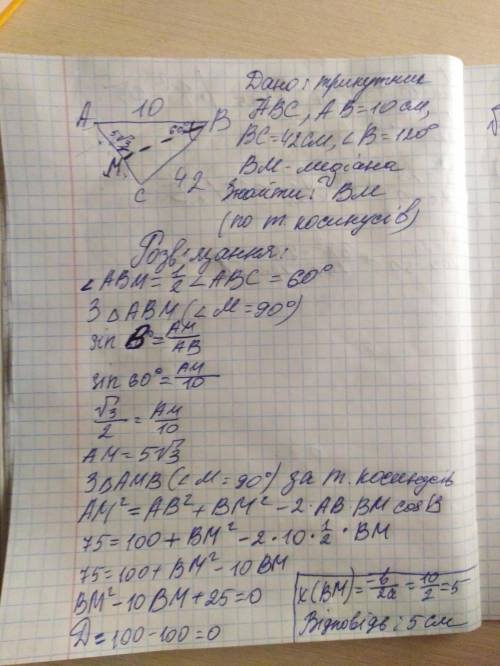 Дано: трикутник
ABC, AB=10см,
BC=42см, ∠B=120°
BM-медіана
Знайти: BM
(по т. косинусів)
A 10 B
5√3 60°
M
C 42
Розв'язання:
∠ABM=1/2∠ABC=60°
З △ABM(∠M=90°)
sin B°=AM/AB
sin 60°=AM/10
√3/2=AM/10
AM=5√3
З△AMB(∠M=90°) за т. косинусів
AM²=AB²+BM²-2·AB·BM cosB
75=100+BM²-2·10·1/2·BM
75=100+BM²-10BM
BM²-10BM+25=0
D=100-100=0
x(BM)=-b/2a=10/2=5
Відповідь: 5 см